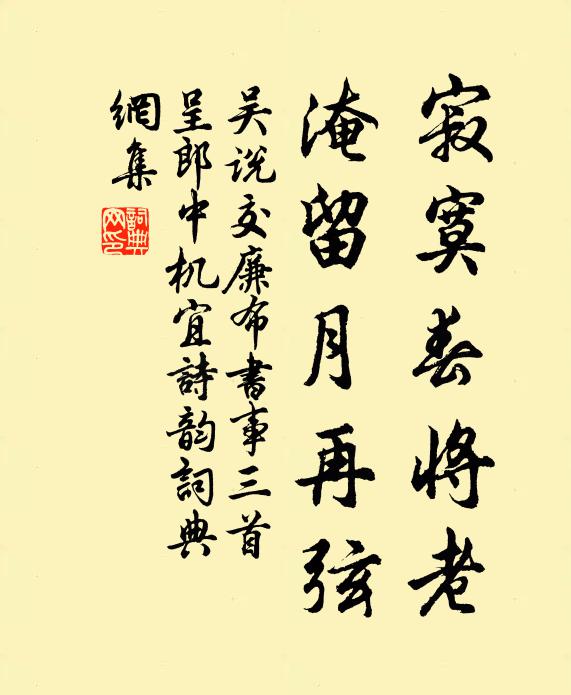 寂寞春將老
淹留月再弦
吴说交廉布書事三首
呈郎中机宜詩韵詞典
網集
詞典网印